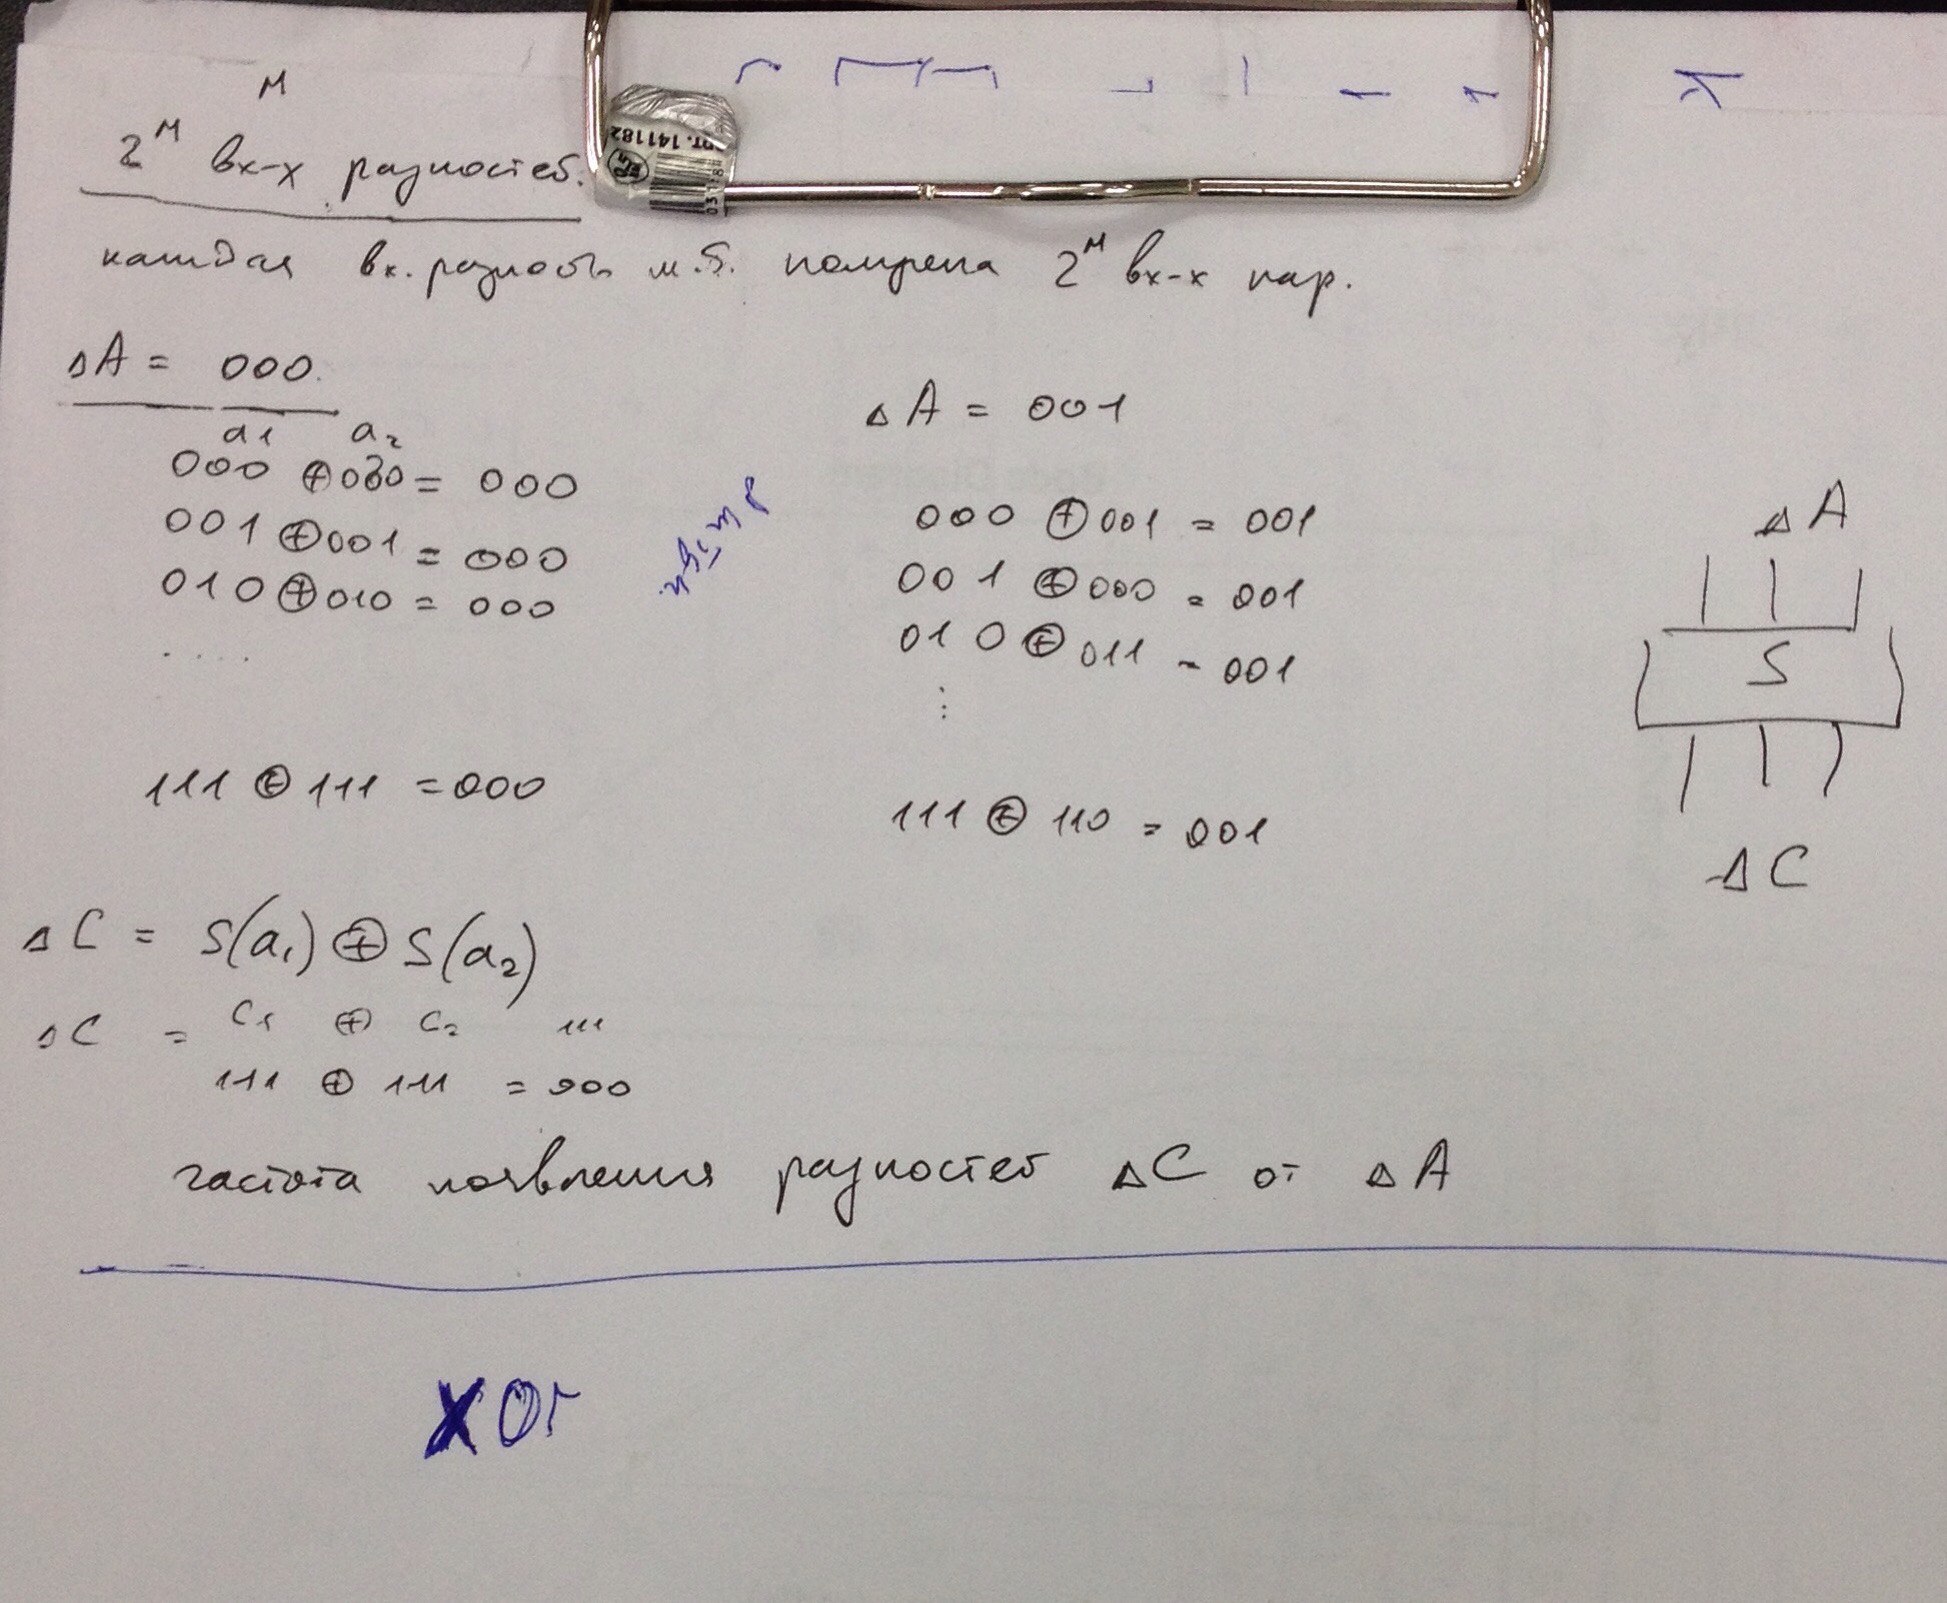 м
2^м вх-х разностей.
каждая вх. разность м.б. получена 2^м вх-х пар.
ΔA = 000
a1 a2
000 ⊕ 000 = 000
001 ⊕ 001 = 000
010 ⊕ 010 = 000
....
111 ⊕ 111 = 000
ΔA = 001
000 ⊕ 001 = 001
001 ⊕ 000 = 001
010 ⊕ 011 = 001
⋮
111 ⊕ 110 = 001
ΔA
S
ΔC
ΔC = S(a₁) ⊕ S(a₂)
ΔC = C₁ ⊕ C₂ 111
111 ⊕ 111 = 000
частота появления разностей ΔC от ΔA
xor
РТ. 141182